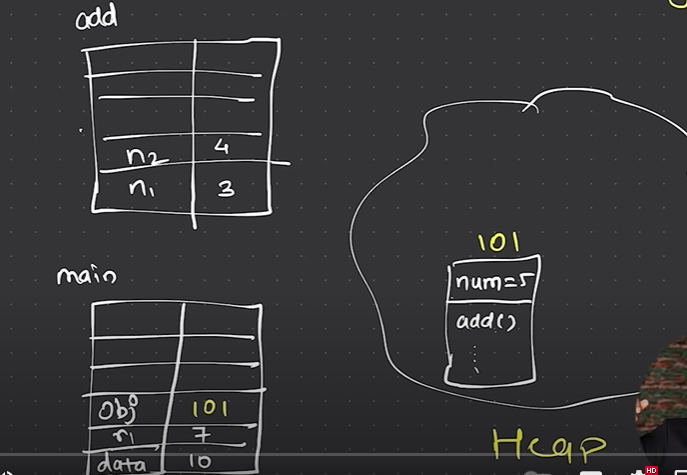 add
n2 4
n1 3
main
obj 101
r1 7
data 10
101
num=5
add()
Heap
HD